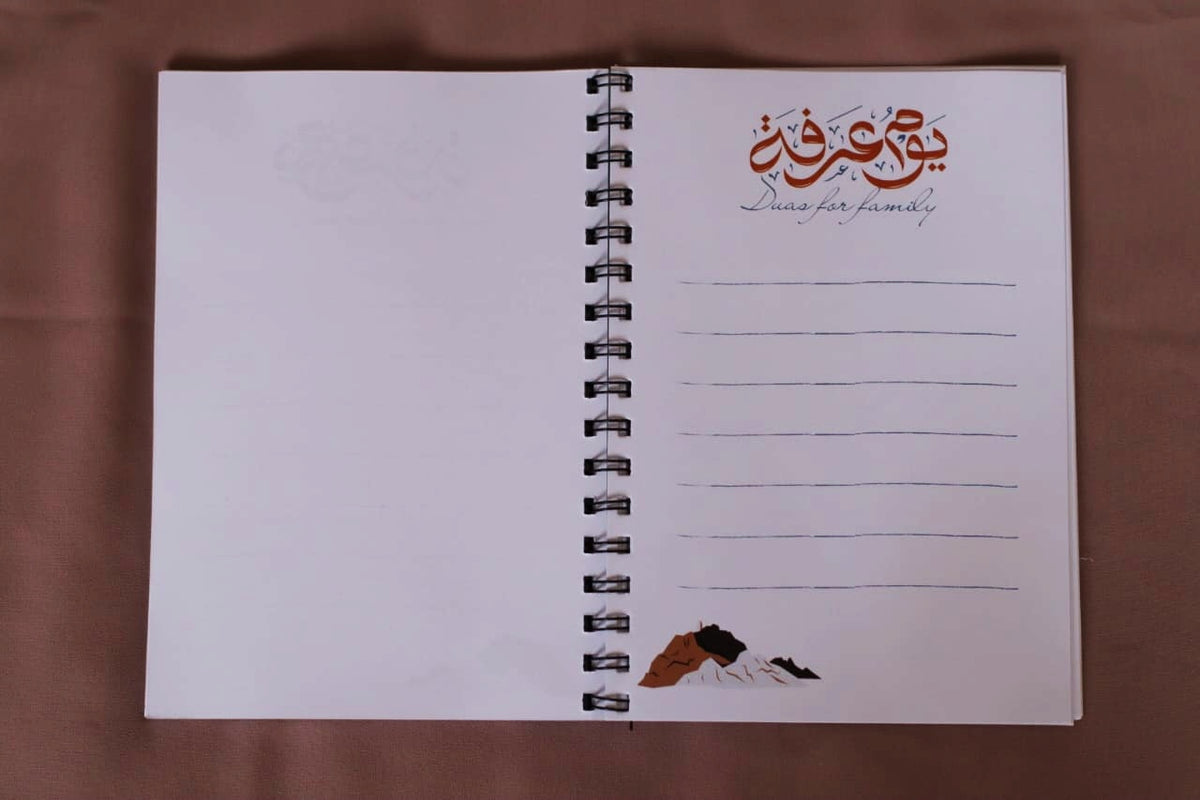 يوم عرفة
Duas for family